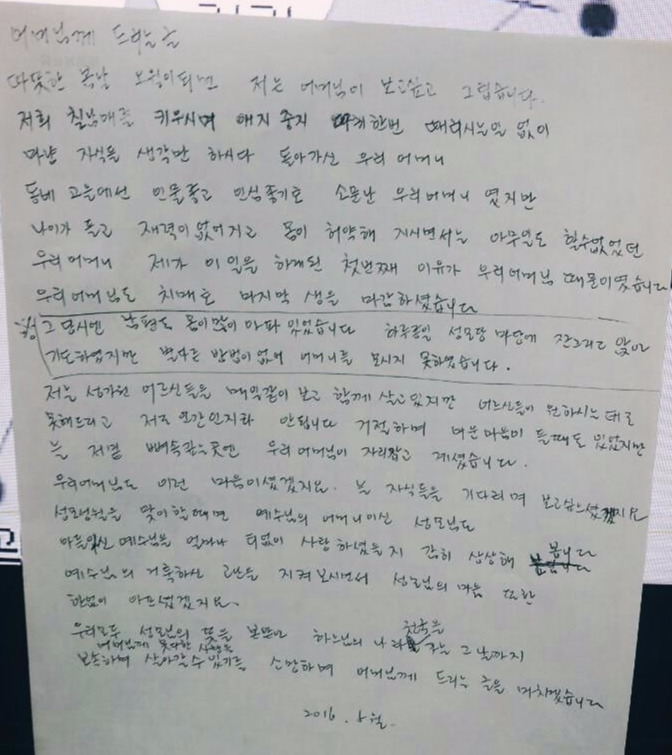 어머님께 드리는 글
따뜻한 봄날 오월이되면 저는 어머님이 보고싶고 그립습니다.
저희 칠남매를 키우시며 애지 중지 한번 때리시는일 없이
마냥 자식을 생각만 하시다 돌아가신 우리 어머니
동네 고을에선 인물좋고 인심좋기로 소문난 우리어머니 였지만
나이가 들고 재력이 없어지고 몸이 허약해 지시면서는 아무일도 할수없었던
우리 어머니 제가 이 일을 하게된 첫번째 이유가 우리어머님 때문이였습니다
우리 어머님도 치매로 마지막 생을 마감하셨습니다
그 당시엔 남편도 몸이많이 아파 있었습니다 하루종일 성모당 마당에 앉아
기도하였지만 별다른 방법이 없어 어머니를 모시지 못하였습니다.
저는 성가원 어르신들을 매일같이 보고 함께 살고있지만 어르신들이 원하시는데로
못해드리고 저도 인간인지라 안됩니다 거절하며 마음이 들때도 있었지만
늘 저곁 뼈속같은곳엔 우리 어머님이 자리잡고 계셨습니다.
우리어머님도 이런 마음이셨겠지요. 늘 자식들을 기다리며 보고싶으셨겠지요
성모성월을 맞이할때면 예수님의 어머니이신 성모님도
아들이신 예수님을 얼마나 사랑하셨을지 감히 상상해 봅니다
예수님의 거룩하신 고난을 지켜보시면서 성모님의 마음 또한
한없이 아프셨겠지요.
우리모두 성모님의 뜻을 본받아 하느님의 나라 천국을 가는 그날까지
어머님께 못다한 사랑을
보속하며 살아갈수 있기를 소망하며 어머님께 드리는 글을 마치겠습니다
2016. 5월.